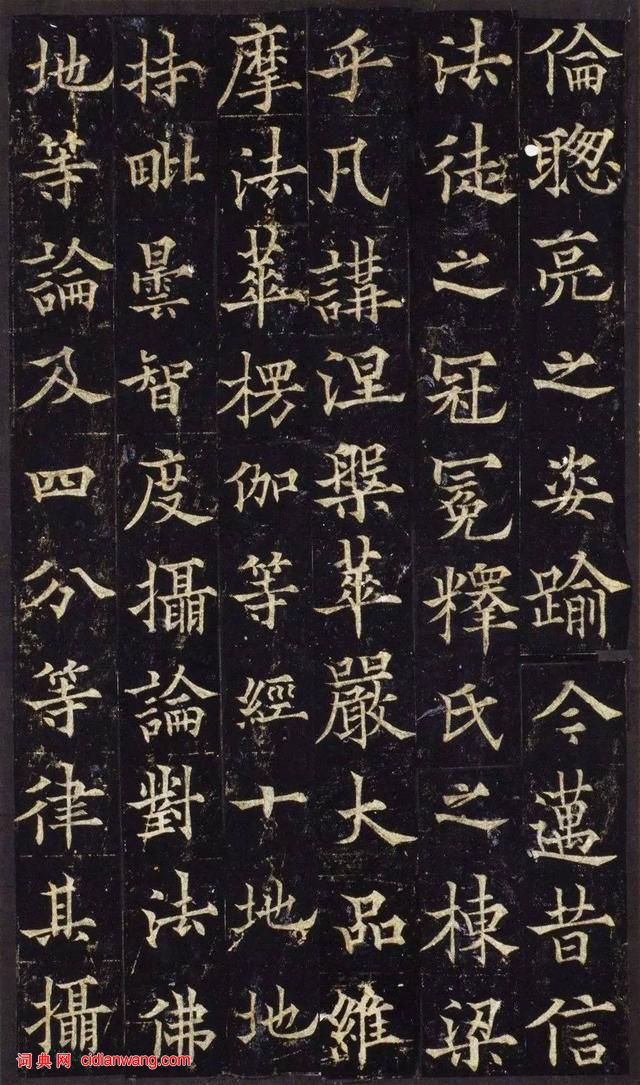 倫聦亮之姿踰今邁昔信
法徒之冠冕釋氏之棟梁
乎凡講涅槃華嚴大品維
摩法華楞伽等經十地地
持毗曇智度攝論對法佛
地等論及四分等律其攝
词典网 cidianwang.com